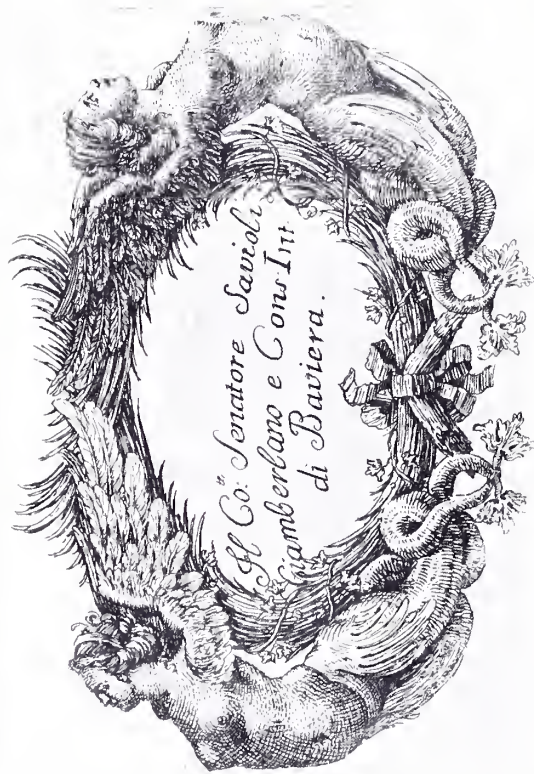 Il Co:te Senatore Savioli
Ciamberlano e Cons. Int.
di Baviera.